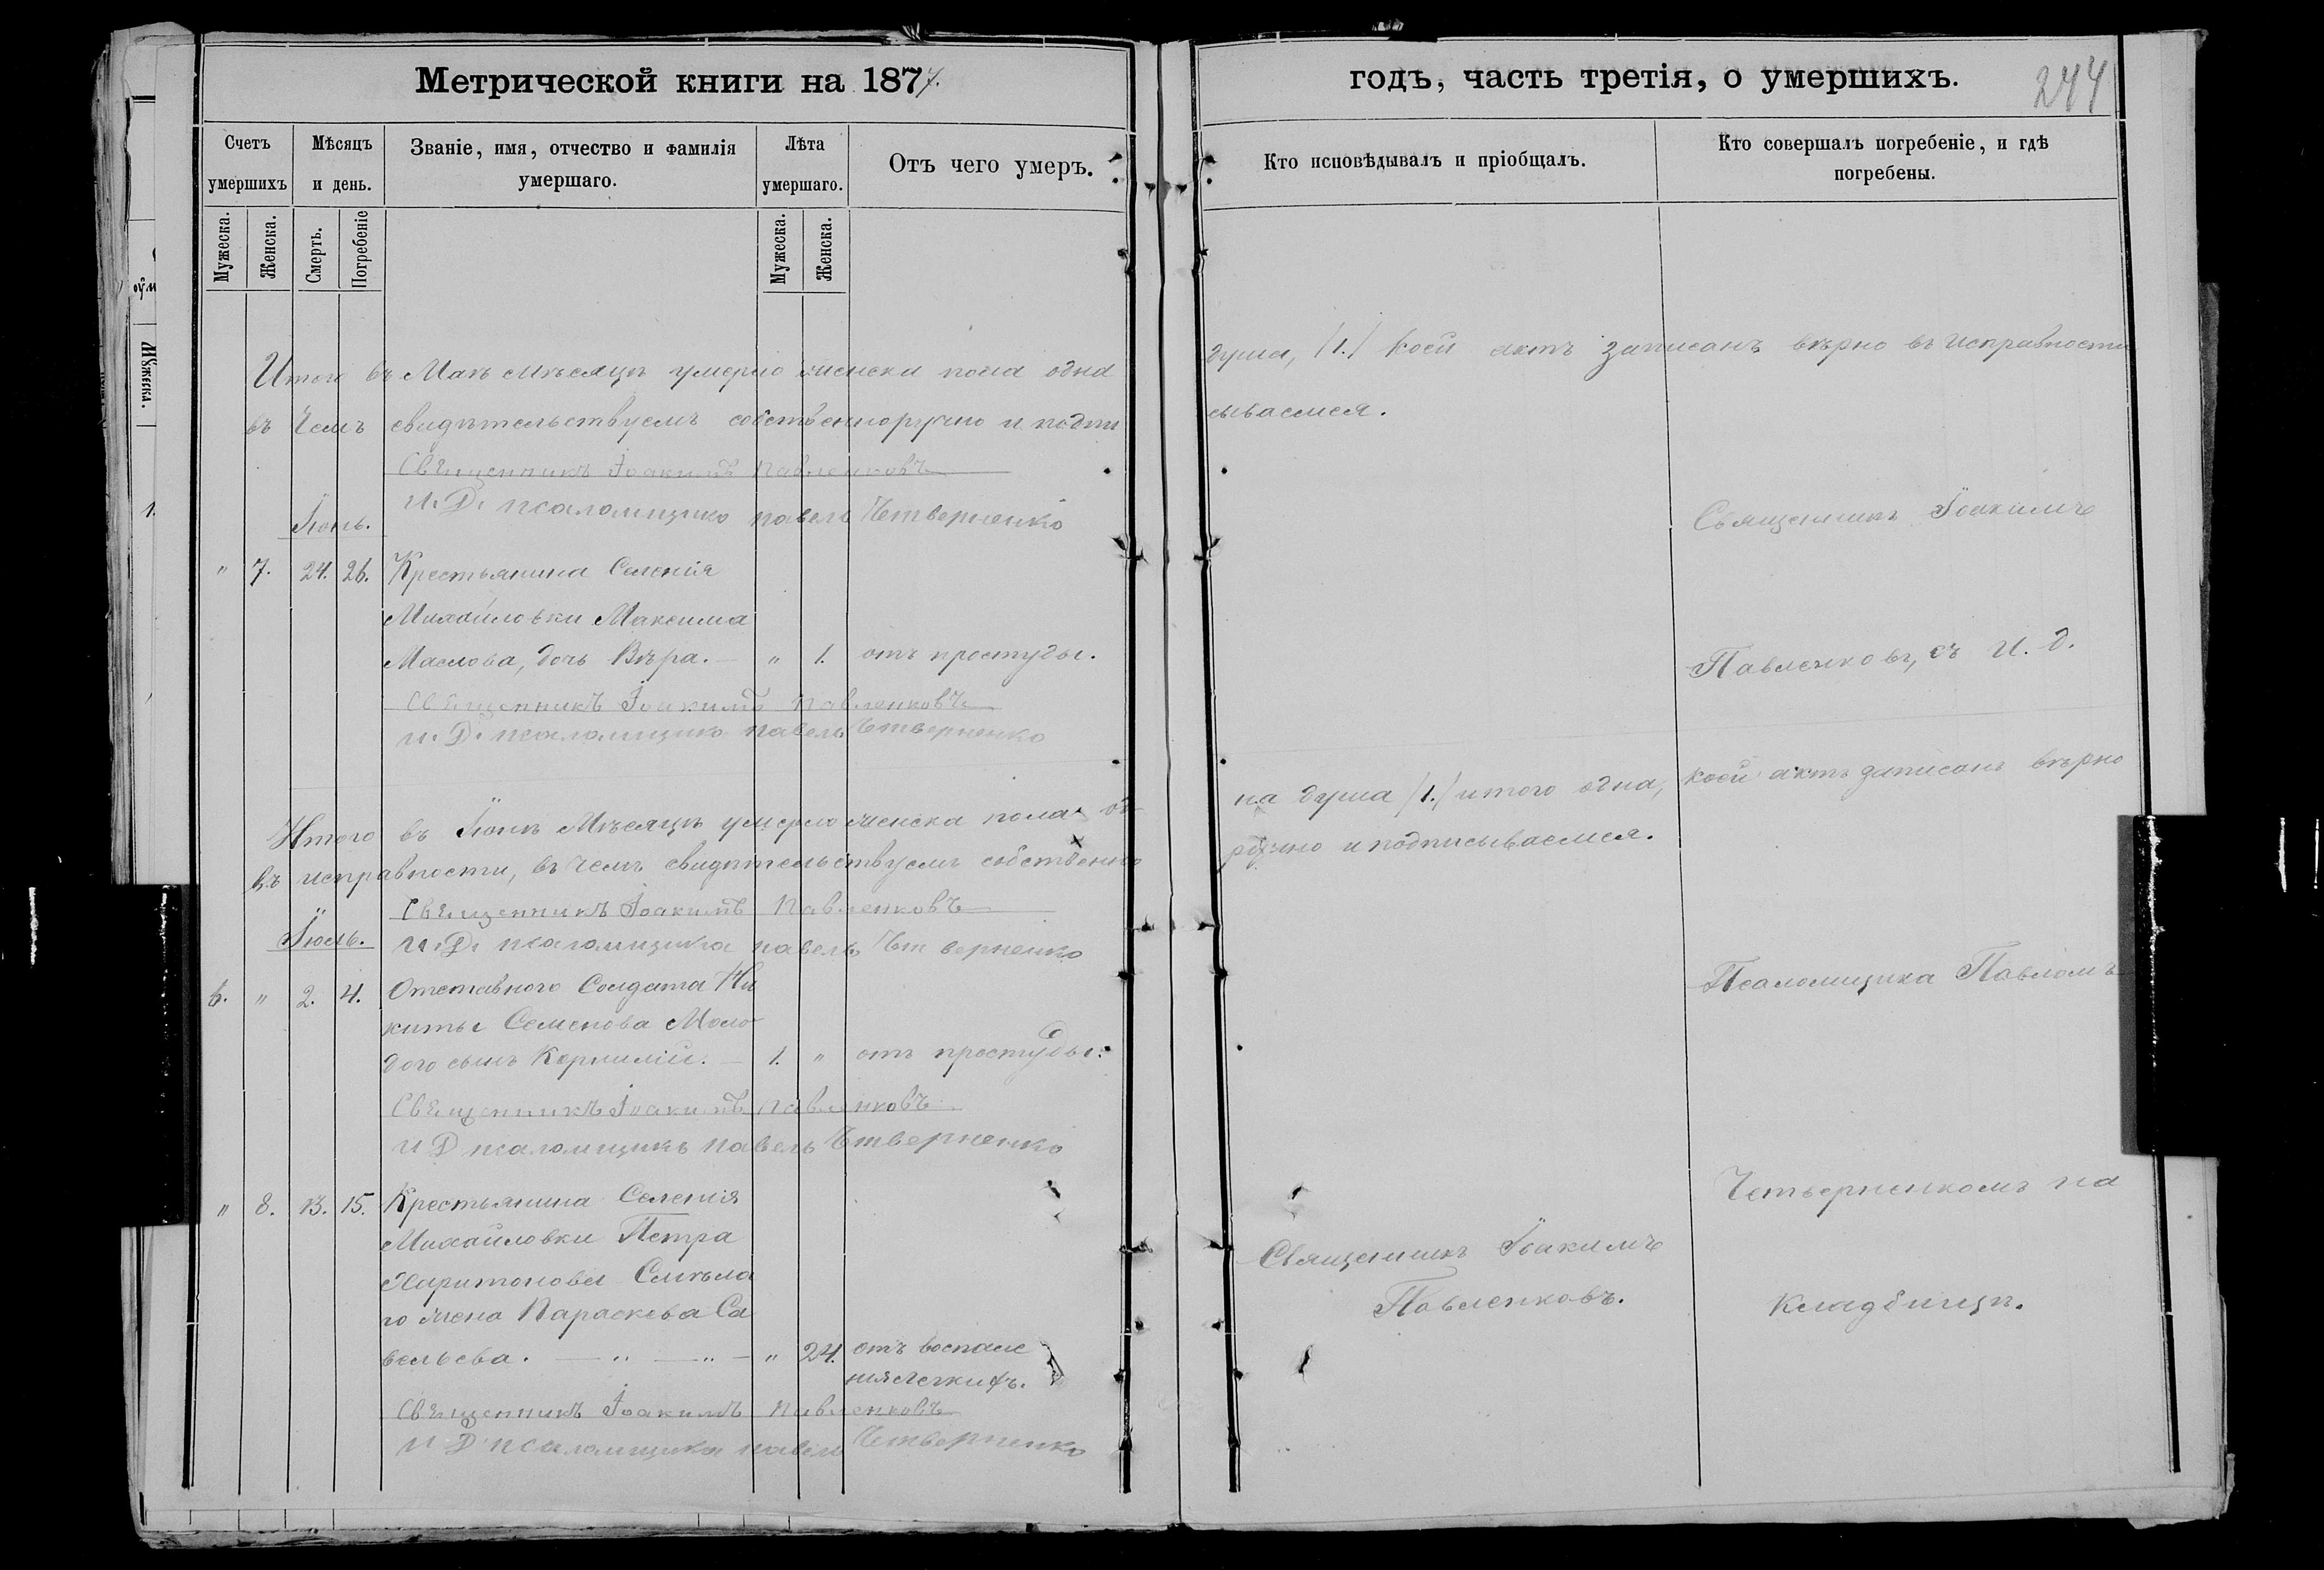 Метрической книги на 1877.
годъ, часть третія, о умершихъ.
244
Счетъ умершихъ
Мѣсяцъ и день.
Званіе, имя, отчество и фамилія умершаго.
Лѣта умершаго.
Отъ чего умеръ.
Кто исповѣдывалъ и пріобщалъ.
Кто совершалъ погребеніе, и гдѣ погребены.
Мужеска.
Женска.
Смерть.
Погребеніе
Мужеска.
Женска.
Итого въ Маѣ мѣсяцѣ умерло женска пола одна душа, /1./ коей актъ записанъ вѣрно въ исправности
въ чемъ свидѣтельствуемъ собственноручно и подпи сываемся.
Священникъ Іоакимъ Павленковъ
И. Д. псаломщика павелъ Четверненко
Іюнь.
" 7. 24. 26. Крестьянина Селенія
Михайловки Максима
Маслова, дочь Вѣра. — " 1. отъ простуды.
Священникъ Іоакимъ Павленковъ
и. Д. псаломщика павелъ Четверненко
Итого въ Іюнѣ Мѣсяцѣ умерло женска пола од на душа /1./ итого одна, коей актъ записанъ вѣрно
въ исправности, въ чемъ свидѣтельствуемъ собственно ручно и подписываемся.
Священникъ Іоакимъ Павленковъ
Іюль.
И. Д. псаломщика павелъ Четверненко
6. " 2. 4. Отставного Солдата Ни
киты Семенова Моло
дого сынъ Корнилій. — 1. " отъ простуды.
Священникъ Іоакимъ Павленковъ
И Д псаломщикъ павелъ Четверненко
" 8. 13. 15. Крестьянина Селенія
Михайловки Петра
Харитонова Смѣла
го жена Параскева Са
вельева. — " — " — " 24. отъ воспале
нія легкихъ.
Священникъ Іоакимъ Павленковъ
И Д псаломщика павелъ Четверненко
Священникъ Іоакимъ
Павленковъ.
Священникъ Іоакимъ
Павленковъ, съ И. д.
Псаломщика Павломъ
Четверненкомъ на
Кладбищѣ.